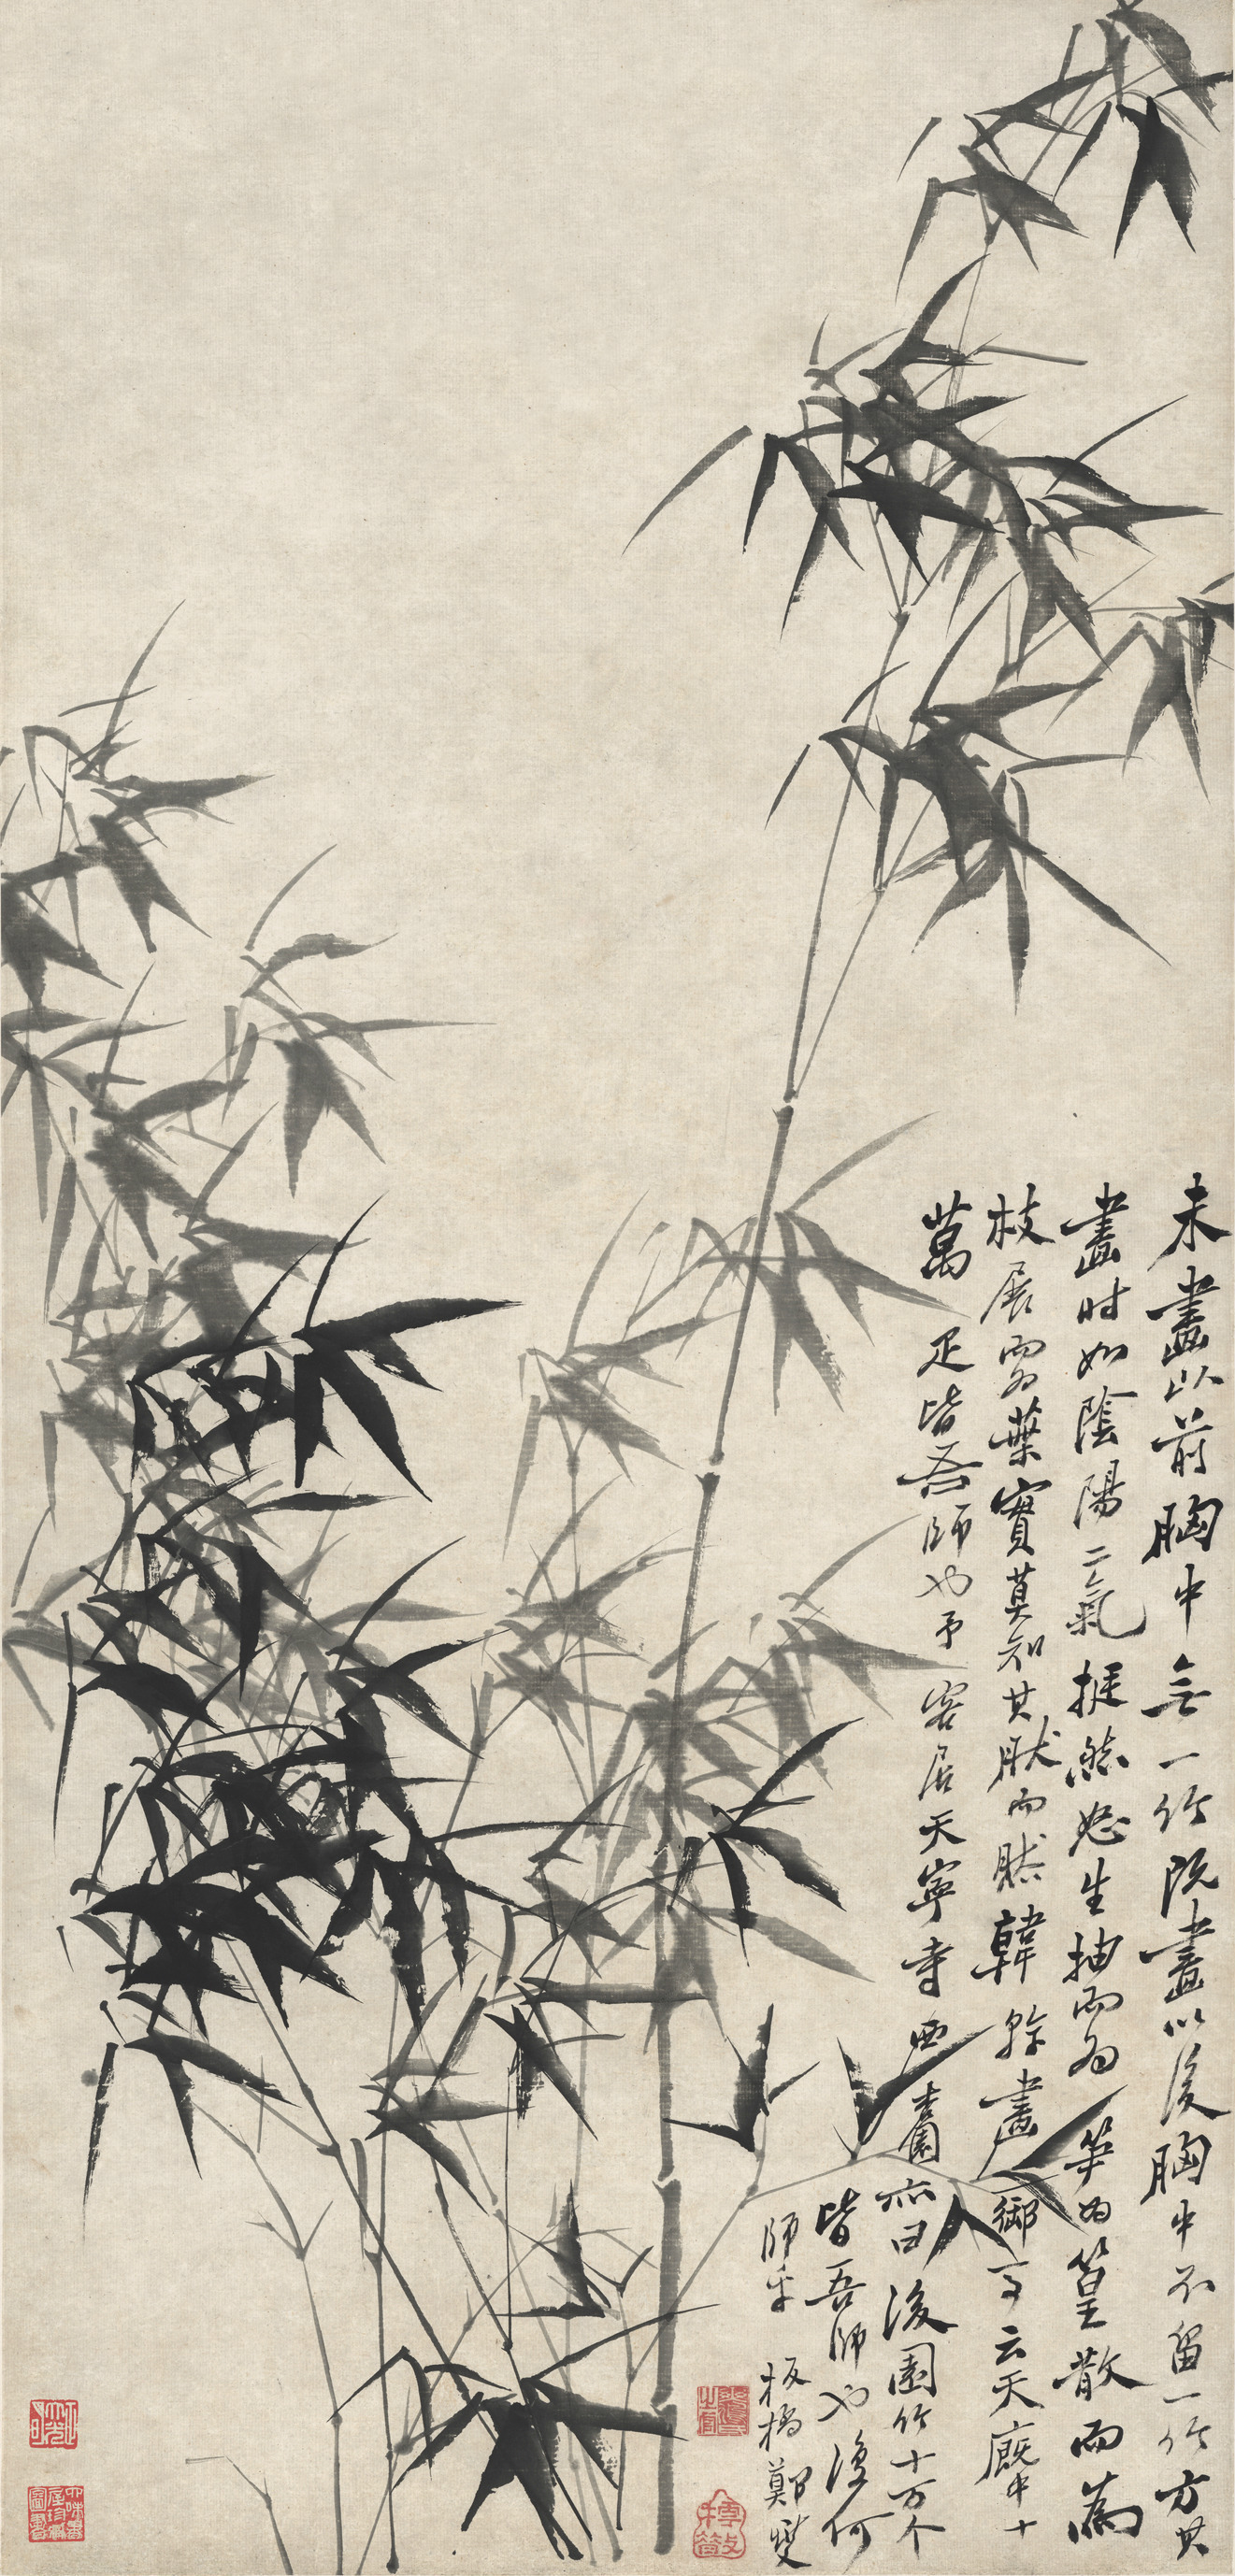 未畫以前胸中無一竹既畫以後胸中不留一竹方其
畫時如陰陽二氣挺然怒生抽而為笋為篁散而為
枝展而為葉實莫知其然而然韓幹畫御馬云天廐中十
萬疋皆吾師也予客居天寧寺西
杏園亦曰後園竹十万个
皆吾師也復何
師乎 板橋鄭燮